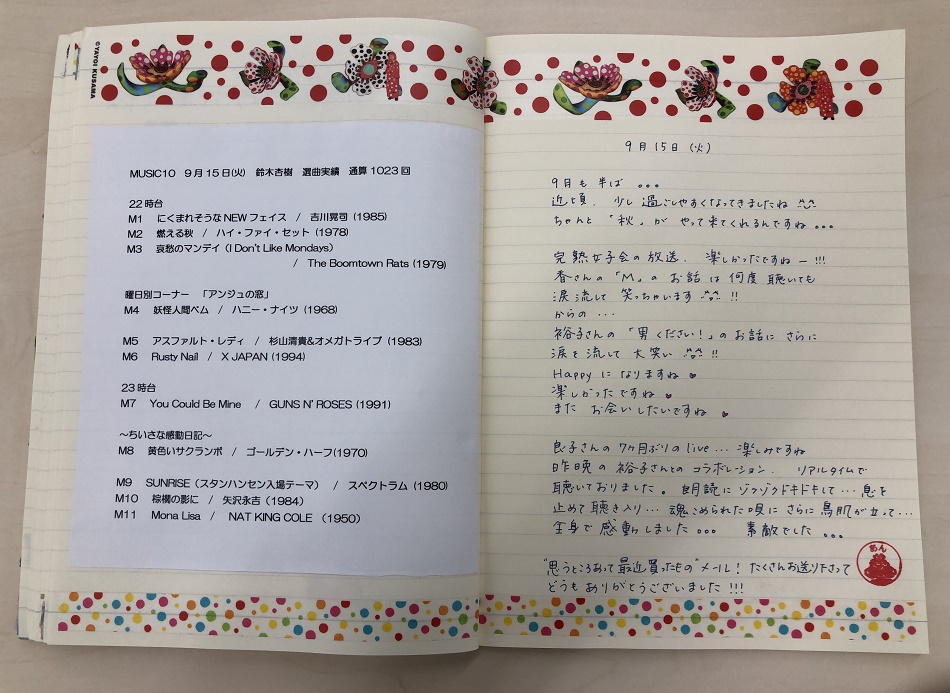 ©YAYOI KUSAMA
MUSIC10 9月15日(火) 鈴木杏樹 選曲実績 通算1023回
22時台
M1 にくまれそうなNEWフェイス / 吉川晃司 (1985)
M2 燃える秋 / ハイ・ファイ・セット (1978)
M3 哀愁のマンデイ (I Don't Like Mondays)
/ The Boomtown Rats (1979)
曜日別コーナー 「アンジュの窓」
M4 妖怪人間ベム / ハニー・ナイツ (1968)
M5 アスファルト・レディ / 杉山清貴&オメガトライブ (1983)
M6 Rusty Nail / X JAPAN (1994)
23時台
M7 You Could Be Mine / GUNS N' ROSES (1991)
～ちいさな感動日記～
M8 黄色いサクランボ / ゴールデン・ハーフ(1970)
M9 SUNRISE (スタンハンセン入場テーマ) / スペクトラム (1980)
M10 棕櫚の影に / 矢沢永吉 (1984)
M11 Mona Lisa / NAT KING COLE (1950)
9月15日 (火)
9月も半ば 。。。
近頃、少し過ごしやすくなってきましたね ^^
ちゃんと「秋」が やって来てくれるんですね 。。。
完熟女子会の放送、楽しかったですねー!!!
香さんの「M」のお話は何度聴いても
涙流して笑っちゃいます ^^ !!
からの ・・・
裕子さんの「男ください!」のお話に さらに
涙を流して 大笑い ^^ !!
Happy に なりますね ♥
楽しかったですね ♥
また お会いしたいですね ♥
良子さんの 7ヶ月ぶりの live ... 楽しみですね
昨晩の 裕子さんとの コラボレーション、リアルタイムで
聴いておりました。朗読に ゾクゾクドキドキして ... 息を
止めて 聴き入り ... 魂こめられた唄に さらに 鳥肌が立って ...
全身で 感動しました 。。。 素敵でした 。。。
"思うところあって最近買ったもの"メール! たくさんお送り下さって
どうも ありがとうございました !!!
あん